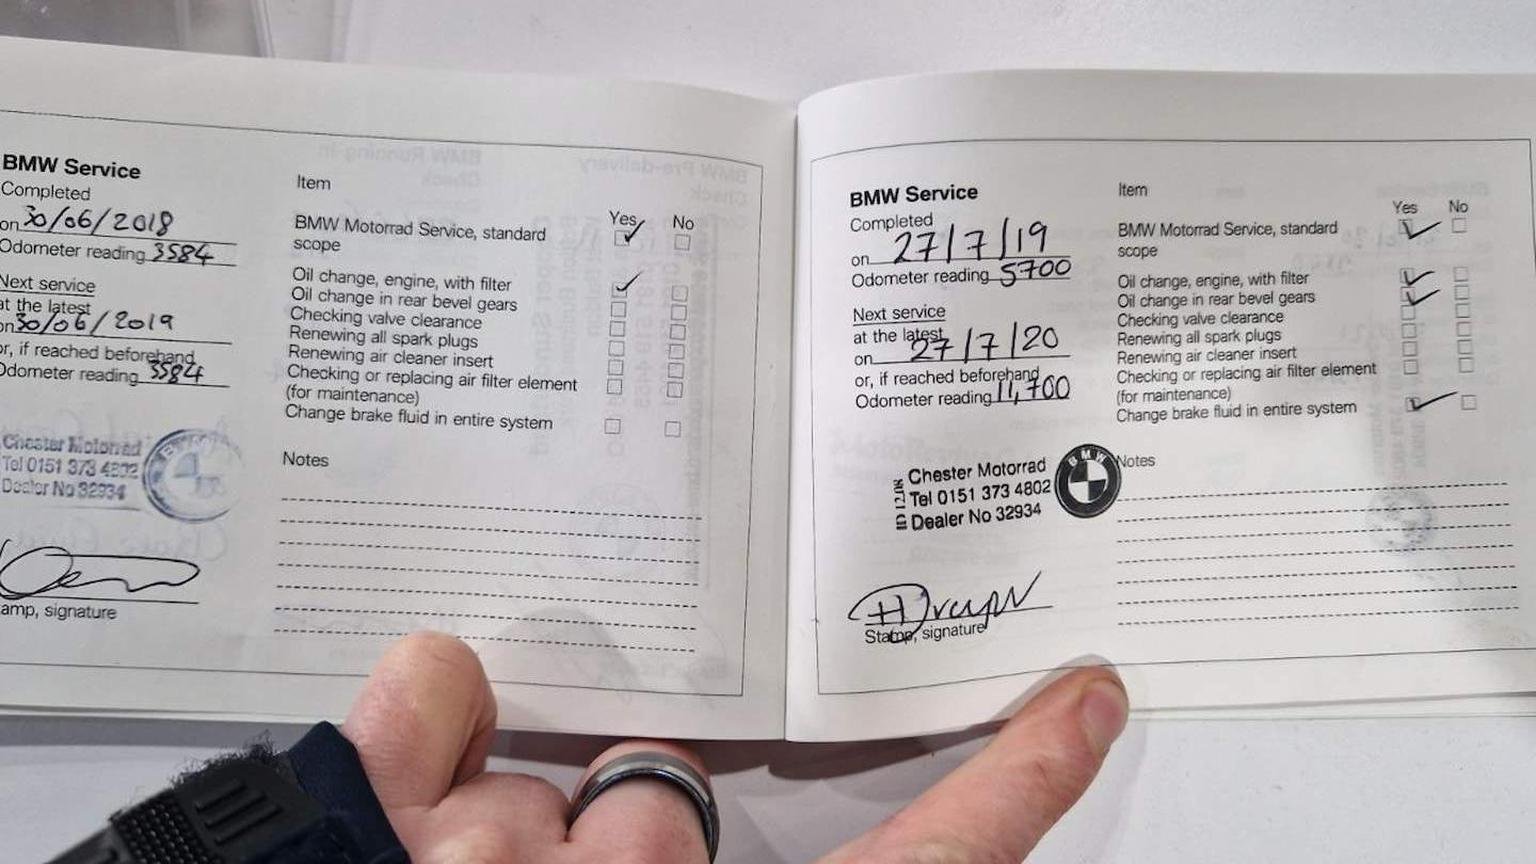 BMW Service
Completed
on 30/06/2018
Odometer reading 3584
Next service
at the latest
on 30/06/2019
or, if reached beforehand
Odometer reading 3584
Chester Motorrad
Tel 0151 373 4802
Dealer No 32934
amp, signature
Item
Yes No
BMW Motorrad Service, standard
scope
Oil change, engine, with filter
Oil change in rear bevel gears
Checking valve clearance
Renewing all spark plugs
Renewing air cleaner insert
Checking or replacing air filter element
(for maintenance)
Change brake fluid in entire system
Notes
BMW Service
Completed
on 27/7/19
Odometer reading 5700
Next service
at the latest
on 27/7/20
or, if reached beforehand
Odometer reading 11,700
Chester Motorrad
Tel 0151 373 4802
Dealer No 32934
BMW
Stamp, signature
Item
Yes No
BMW Motorrad Service, standard
scope
Oil change, engine, with filter
Oil change in rear bevel gears
Checking valve clearance
Renewing all spark plugs
Renewing air cleaner insert
Checking or replacing air filter element
(for maintenance)
Change brake fluid in entire system
Notes